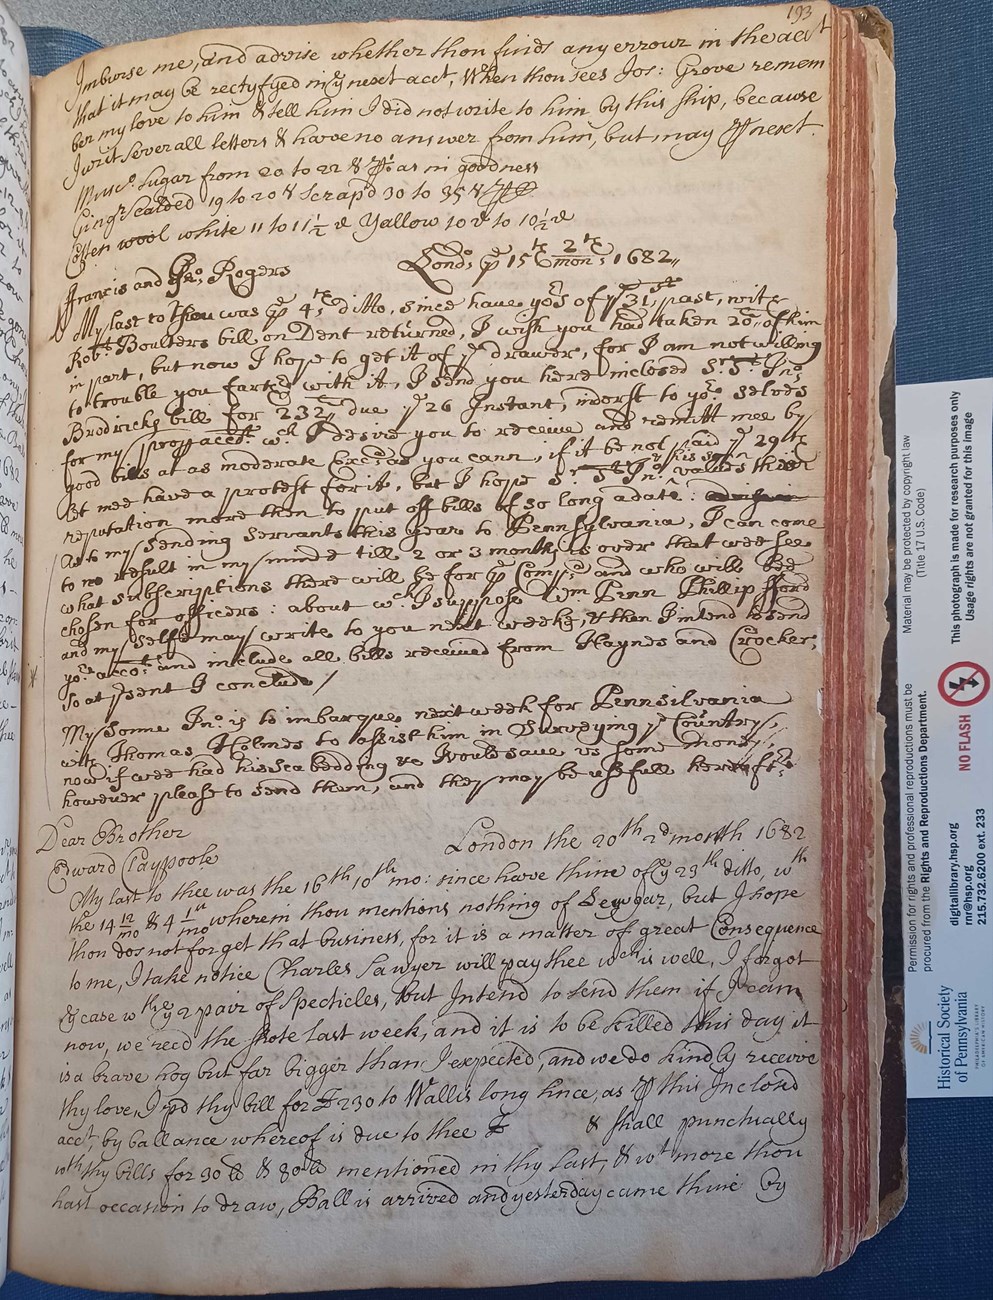 193
Imburse me, and advise whether thou finds any errour in the acct
that it may be rectyfyed in ye next acct, When thou sees Jos: Grove remem
ber my love to him & tell him I did not write to him by this ship, because
I writ severall letters & have no answer from him, but may p next.
Musco. Sugar from 20 to 22 & as in goodness
Ging. Scalded 19 to 20 & Scrap'd 30 to 35
Cotten wool white 11 to 11 1/2 d Yallow 10 d to 10 1/2 d
Lond. ye 15th 2th mon: 1682
Francis and Geo. Rogers
My last to thou was ye 4th ditto, since have yos of ye 31st past, with
Robt. Boulters bill on Dent returned, I wish you had taken 20 of him
in part, but now I hope to get it of ye drawer, for I am not willing
to trouble you farther with it, I send you here inclosed Sr. Jno.
Brodricks bill for 232 due ye 26 Instant, indorst to yor. selves
for my propr acct. wch I desire you to receive and remitt mee by
good bills at as moderate Exc: as you cann, if it be not paid ye 29th
let mee have a protest for it, but I hope Sr. Jno. values his
reputation more then to put off bills of so long a date:
As to my sending servants this year to Pennsylvania, I can come
to no result in my minde till 2 or 3 months is over that wee see
what subscriptions there will be for ye Compa. and who will bee
chosen for officers: about wch. I suppose Wm Penn Phillip fford
and my selfe may write to you next weeke, & then I intend to send
yor. acco: and include all bills received from Haynes and Crocker,
so at psent I conclude /
My Sonne Jno. is to imbarque next week for Pennsilvania
with Thomas Holmes to assist him in Surveying ye Country,
now if wee had his sea bedding it would save us some money,
however please to send them, and they may be usefull hereaftr.
Dear Brother
London the 20th 2d month 1682
Edward Claypoole
My last to thee was the 16th 10th mo: since have thine of ye 23th ditto, wth
the 14 12/mo & 4 1st/mo wherein thou mentions nothing of Seugar, but I hope
thou dos not forget that business, for it is a matter of great Consequence
to me, I take notice Charles Sawyer will pay thee wch is well, I forgot
ye case wth ye 2 pair of Specticles, but Intend to send them if I can
now, we recd the shote last week, and it is to be killed this day it
is a brave hog but far bigger than I expected, and we do kindly receive
thy love, I pd thy bill for £230 to Wallis long since, as p this Inclosd
acct, by ballance whereof is due to thee £ & shall punctually
wth thy bills for 30 & 80 mentioned in thy last, & wt more thou
hast occasion to draw, Ball is arrived and yesterday came thine by
Material may be protected by copyright law
(Title 17 U.S. Code)
This photograph is made for research purposes only
Usage rights are not granted for this image
Permission for rights and professional reproductions must be
procured from the Rights and Reproductions Department.
NO FLASH
Historical Society
of Pennsylvania
PHILADELPHIA'S LIBRARY
OF AMERICAN HISTORY
digitallibrary.hsp.org
rnr@hsp.org
215.732.6200 ext. 233